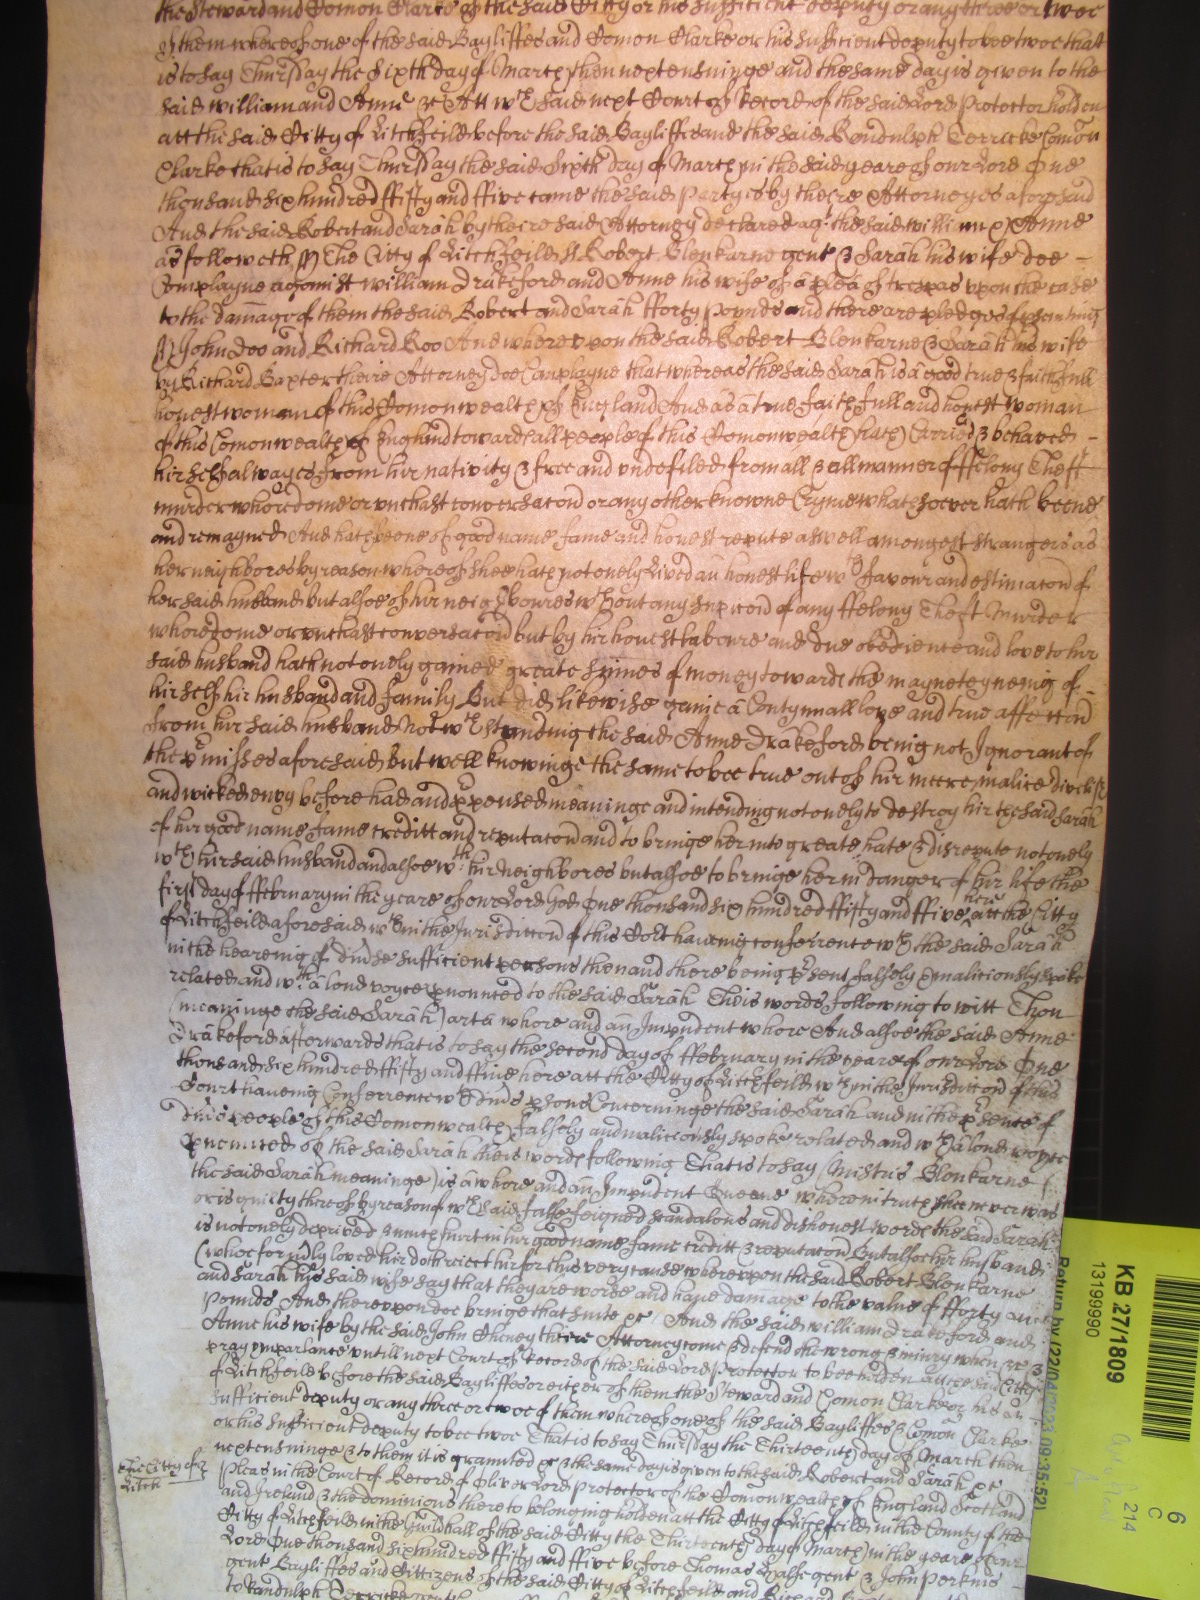 the Steward and Comon Clarke of the said Citty or his sufficient deputy or any three or twoe
of them whereof one of the said Bayliffes and Comon Clarke or his sufficient deputy to bee twoe that
is to say Thursday the Sixth day of March then next ensuinge and the same day is given to the
said William and Anne &c Att wch said next Court of Record of the said Lord Protector holden
att the said Citty of Litchfeild before the said Bayliffes and the said Randulph Terricke Comon
Clarke that is to say Thursday the said Sixth day of March in the said yeare of our Lord One
thousand six hundred ffifty and ffive came the said partyes by theire Attorneyes aforesaid
And the said Robert and Sarah by theire said Attorney declared agt the said William & Anne
as followeth The Citty of Litchfeild ss Robert Blenkarne gent & Sarah his wife doe
Complayne against William Drakeford and Anne his wife of a plea of trespas upon the case
to the damage of them the said Robert and Sarah fforty pounds and there are pledges of
John Doo and Richard Roo And whereupon the said Robert Blenkarne & Sarah his wife
by Richard Baxter theire Attorney doe Complayne that whereas the said Sarah is a good true & faithfull
honest woman of this Comonwealth of England And as a true faithfull and honest woman
of this Comonwealth of England towards all people of this Comonwealth hath Carried & behaved
hirself alwayes from hir nativity & free and undefiled from all & all manner of ffelony Theft
murder whoredome or unchast conversacon or any other knowne Cryme whatsoever hath beene
and remayned And hath beene of good name fame and honest repute aswell amongest strangers as
her neighbores by reason whereof shee hath not onely Lived an honest life wth favour and estimacon of
her said husband but alsoe of hir neighboures wthout any suspicion of any ffelony Theft Murder
whoredome or unchast conversacon but by hir honest laboure and due obedience and love to hir
said husband hath not onely gained greate summes of money towards the mayneteyneing of
hirself hir husband and family But did likewise gaine a Contynuall love and true affection
from hir said husband Notwthstanding the said Anne Drakeford being not Ignorant of
the pmisses aforesaid but well knowinge the same to bee true out of hir meere malice
and wicked envy before had and ppensed meaninge and intending not onely to destroy hir the said Sarah
of hir good name fame creditt and reputacon and to bringe her into greate hate & disrepute not onely
wth hir said husband and alsoe wth hir neighbores but alsoe to bringe her in danger of hir life the
first day of ffebruary in the yeare of our Lord God One thousand six hundred ffifty and ffive here att the Citty
of Litchfeild aforesaid wthin the Jurisdiccon of this Cort haveing conference wth the said Sarah
in the heareing of divse sufficient persons then and there being psent falsely & maliciously spoke
related and wth a loud voyce pnounced to the said Sarah Theis words following to witt Thou
(meaninge the said Sarah) art a whore and an Impudent whore And alsoe the said Anne
Drakeford afterwards that is to say the second day of ffebruary in the yeare of our Lord One
thousand six hundred ffifty and ffive here att the Citty of Litchfeild wthin the Jurisdiccon of this
Court haveing Conferrence wth divs psons Concerninge the said Sarah and in the psence of
divs people of this Comonwealth falsely and maliciously spoke related and wth a loud voyce
pnounced of the said Sarah theis words following That is to say Mistris Blenkarne (
the said Sarah meaninge) is a whore and an Impudent Queane wherein truth shee never was
or is guilty thereof by reason of wch said false feigned scandalous and dishonest words the said Sarah
is not onely deprived & much hurt in hir good name fame creditt & reputacon But alsoe hir husband
(whoe formerly loved hir) doth reject hir for this very cause whereupon the said Robert Blenkarne
and Sarah his said wife say that they are worse and have damage to the value of fforty
pounds And thereupon doe bringe that suite &c And the said William Drakeford and
Anne his wife by the said John Cheney theire Attorney come & defend the wrong & iniury when &c &
pray imparlance untill next Court of Record of the said Lord Protector to bee holden att the said Citty
of Litchfeild before the said Bayliffes or either of them the Steward and Comon Clarke or his
sufficient deputy or any three or twoe of them whereof one of the said Bayliffes & Comon Clarke
or his sufficient deputy to bee twoe That is to say Thursday the Thirteenth day of March then
next ensuinge & to them it is graunted &c & the same day is given to the said Robert and Sarah &c
The Citty of
Litch
Pleas in the Court of Record of Oliver Lord Protector of the Comonwealth of England Scotland
and Ireland & the dominions thereto belonging holden att the Citty of Litchfeild in the County of the
Citty of Litchfeild in the Guildhall of the said Citty the Thirteenth day of March in the yeare of our
Lord One thousand six hundred ffifty and ffive before Thomas gent & John Perkins
gent Bayliffes and Cittizens of the said Citty of Litchfeild and Richard
to Randulph Terricke gent
KB 27/1809
13199990
Return by (22/04/2023 09:35:52)
6
C
214